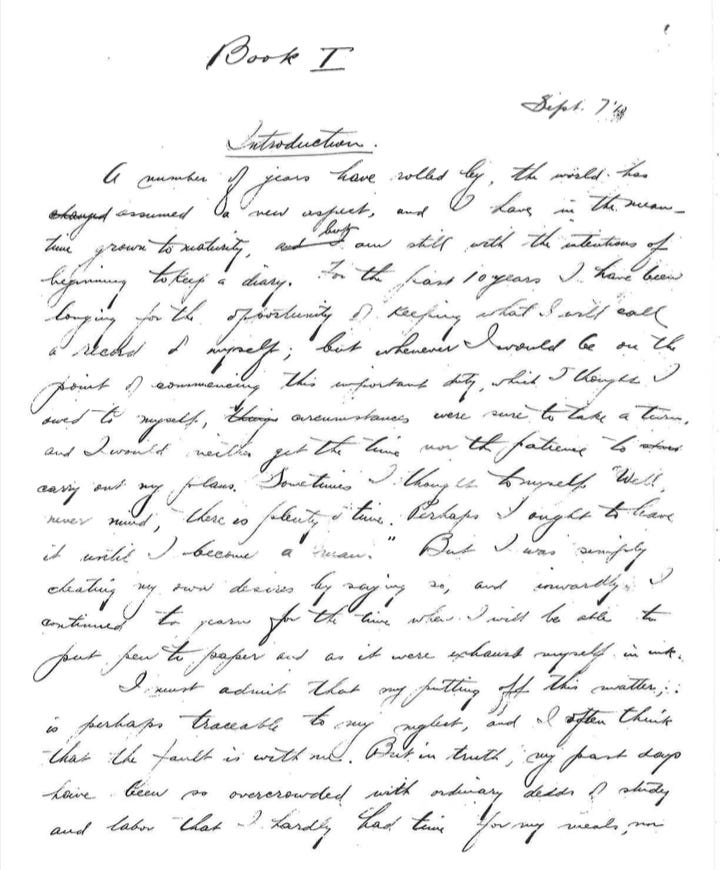 Book I
Sept. 7
Introduction.
A number of years have rolled by, the world has
changed assumed a new aspect, and I have in the mean-
time grown to maturity, and I but am still with the intentions of
beginning to keep a diary. For the past 10 years I have been
longing for the opportunity of keeping what I will call
a record of myself; but whenever I would be on the
point of commencing this important duty, which I thought I
owed to myself, things circumstances were sure to take a turn,
and I would neither get the time nor the patience to
carry out my plans. Sometimes I thought to myself "Well,
never mind, there is plenty of time. Perhaps I ought to leave
it until I become a man." But I was simply
cheating my own desires by saying so, and inwardly I
continued to yearn for the time when I will be able to
put pen to paper and as it were exhaust myself in ink.
I must admit that my putting off this matter,
is perhaps traceable to my neglect, and I often think
that the fault is with me. But in truth, my past days
have been so overcrowded with ordinary deeds of study
and labor that I hardly had time for my meals, nor